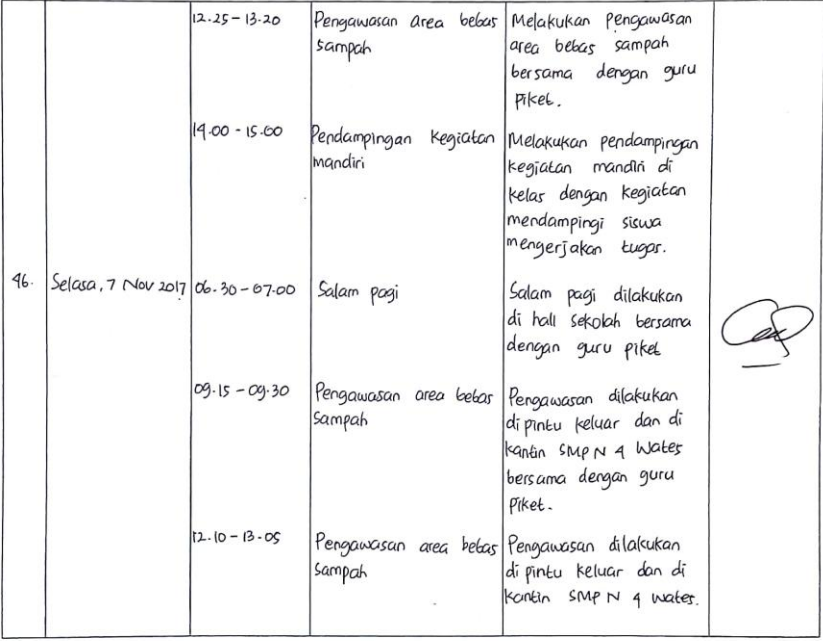 12.25 - 13.20 Pengawasan area bebas Melakukan Pengawasan
sampah area bebas sampah
bersama dengan guru
Piket.
14.00 - 15.00 Pendampingan kegiatan Melakukan pendampingan
mandiri kegiatan mandiri di
kelas dengan kegiatan
mendampingi siswa
mengerjakan tugas.
46. Selasa, 7 Nov 2017 06.30 - 07.00 Salam pagi Salam pagi dilakukan
di hall sekolah bersama
dengan guru piket
09.15 - 09.30 Pengawasan area bebas Pengawasan dilakukan
Sampah di pintu keluar dan di
kantin SMP N 4 Wates
bersama dengan guru
Piket.
12.10 - 13.05 Pengawasan area bebas Pengawasan dilakukan
Sampah di pintu keluar dan di
kantin SMP N 4 Wates.